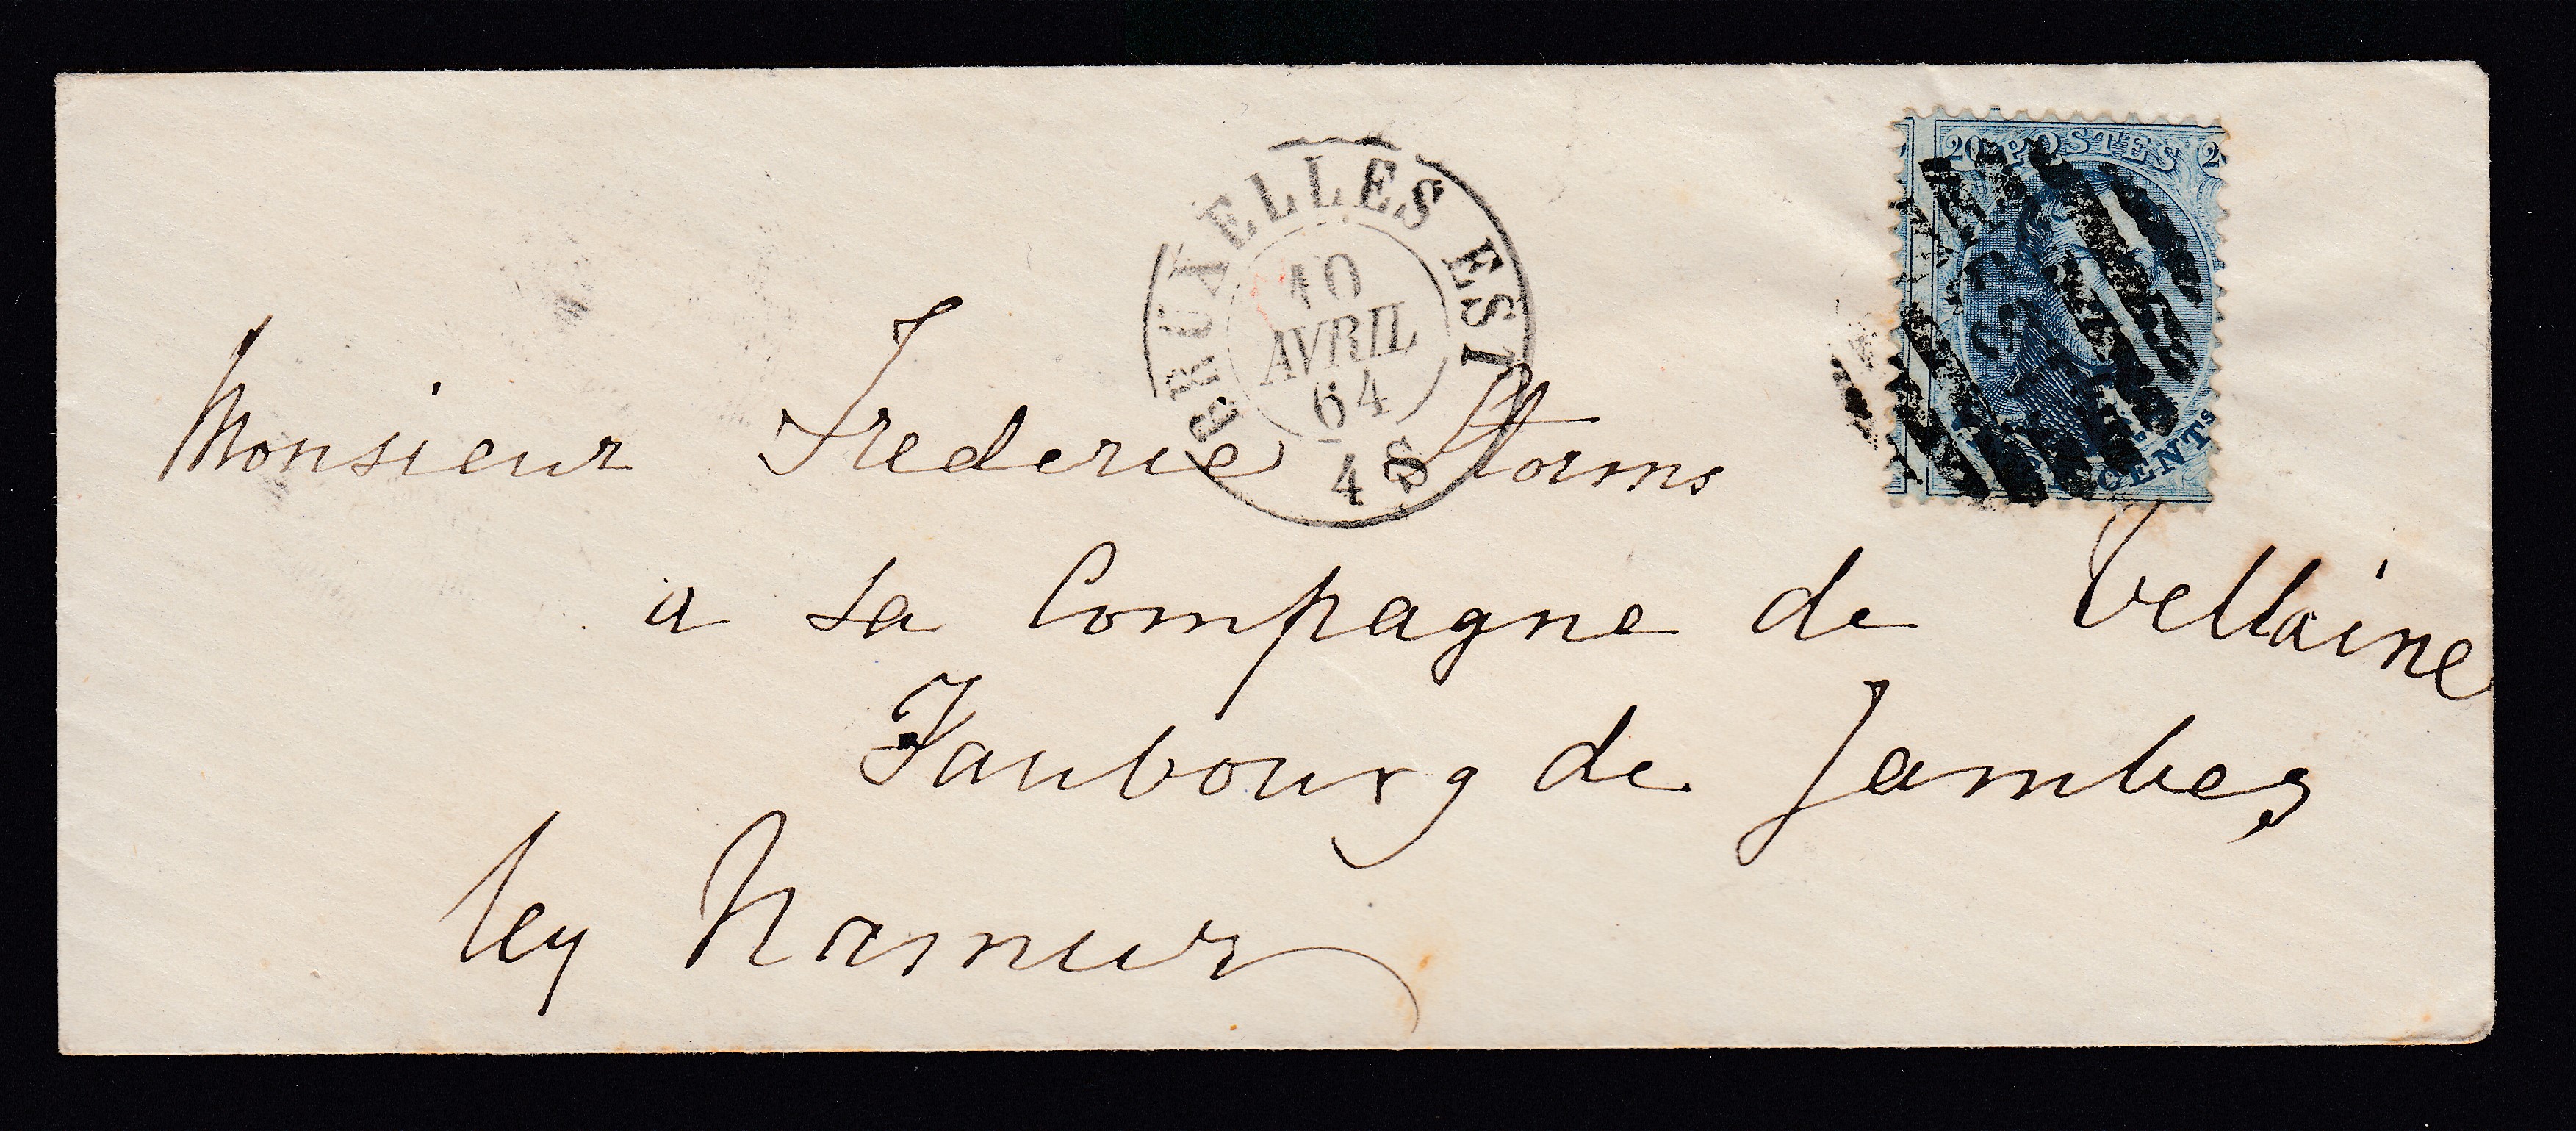 BRUXELLES EST
10
AVRIL
64
4 S
20 POSTES 2
CENTS
Monsieur Frederic Storms
a la Compagne de Vellaine
Faubourg de Jambes
ley Namur